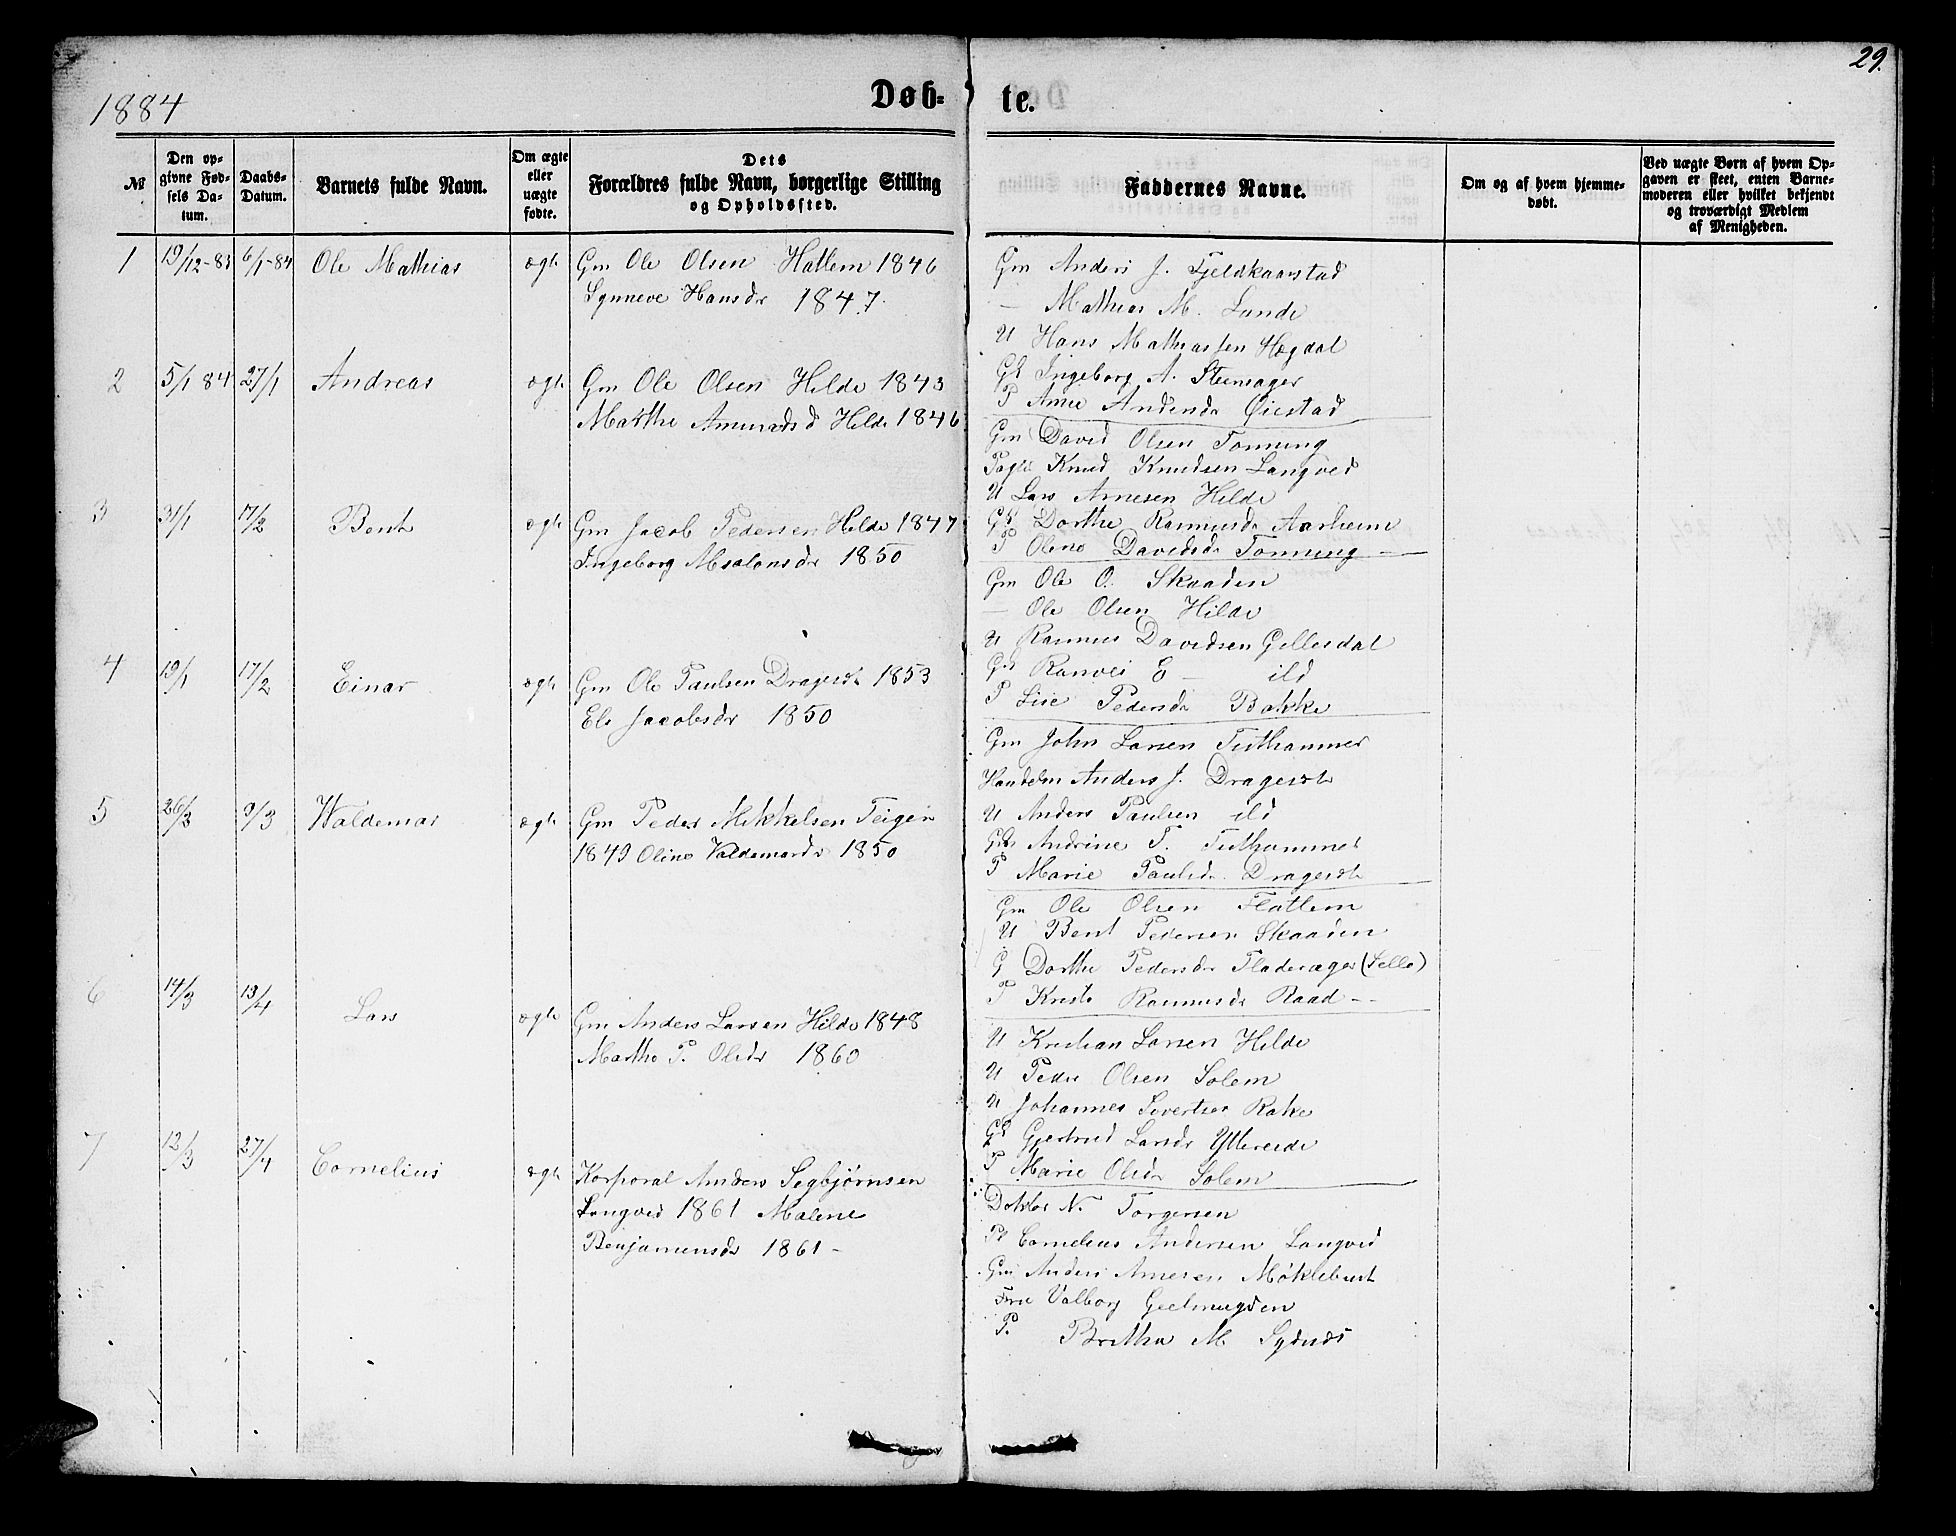 29.
1884
Døb-
te.
№
Den op-
givne Fød-
sels Da-
tum.
Daabs-
Datum.
Barnets fulde Navn.
Om ægte
eller
uægte
fødte.
Dets
Forældres fulde Navn, borgerlige Stilling
og Opholdssted.
Faddernes Navne.
Om og af hvem hjemme-
døbt.
Ved uægte Børn af hvem Op-
gaven er skeet, enten Barne-
moderen eller hvilket bekjendt
og troværdigt Medlem
af Menigheden.
1 19/12-83 6/1-84 Ole Mathias ægte Gm Ole Olsen Hatlem 1846
Synneve Hansdr 1847
Gm Anders J. Fjeldkaarstad
— Mathias M. Lunde
U Hans Mathiassen Høgdal
Gk Ingeborg A. Steensager
P Anne Andersdr Øiestad
2 5/1 84 27/1 Andreas ægte Gm Ole Olsen Hilde 1843
Marthe Amundsd Hilde 1846
Gm David Olsen Tonning
Knud Knudsen Langved
U Lars Arnesen Hilde
Gk Dorthe Rasmusdr Aarheim
P Oline Davidsdr Tonning
3 31/1 17/2 Bent ægte Gm Jacob Pedersen Hilde 1847
Ingeborg Absalonsdr 1850
Gm Ole O. Skaaden
— Ole Olsen Hilde
U Rasmus Davidsen Gillesdal
Gk Ranvei E — ild
P Lise Pedersdr Bakke
4 19/1 17/2 Einar ægte Gm Ole Paulsen Dragesdt 1853
Els Jacobsdr 1850
Gm John Larsen Tisthammer
Handelm Anders J. Dragesdt
U Anders Paulsen ild
Gk Andrine T. Tisthammer
P Marie Paulsdr Dragesdt
5 26/2 9/3 Waldemar ægte Gm Peder Mikkelsen Teigen
1849 Oline Valdemardr 1850
Gm Ole Olsen Flatlem
U Bent Pedersen Skaaden
G Dorthe Pedersdr Fladeræger (Selle)
P Kriste Rasmusdr Raad
6 14/3 13/4 Lars ægte Gm Anders Larsen Hilde 1848
Marthe P. Olsdr 1860
U Kristian Larsen Hilde
U Peder Olsen Solem
U Johannes Sivertsen Rake
Gk Gjertrud Larsdr Yttereide
P Marie Olsdr Solem
7 12/3 27/4 Cornelius ægte Korporal Anders Segbjørnsen
Langved 1861 Malene
Benjaminsdr 1861 -
Doktor N. Torgersen
Cornelius Andersen Langved
Gm Anders Arnesen Møklebust
Frue Valborg Geelmuyden
P. Brithe M